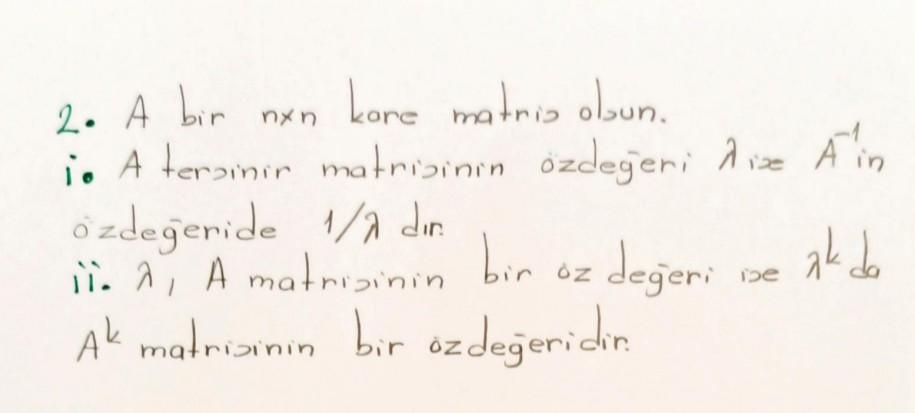 2. A bir nxn kare matris olsun.
i. A tersinir matrisinin özdeğeri λ ise A⁻¹in
özdeğeride 1/λ dır.
ii. λ, A matrisinin bir öz değeri ise λᵏ da
Aᵏ matrisinin bir özdeğeridir.